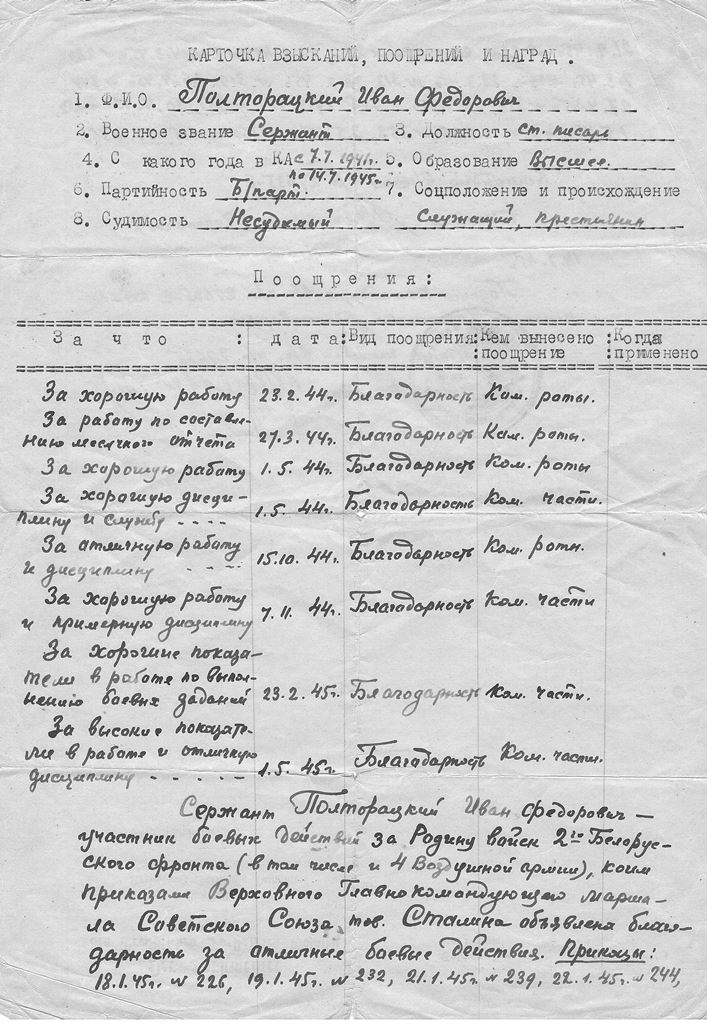 КАРТОЧКА ВЗЫСКАНИЙ, ПООЩРЕНИЙ И НАГРАД.
1. Ф.И.О. Полторацкий Иван Федорович
2. Военное звание Сержант 3. Должность ст. писарь
4. С какого года в КА с 7.7.1941г. 5. Образование Высшее.
по 14.7.1945г.
6. Партийность Б/парт. 7. Соцположение и происхождение
8. Судимость Несудимый Служащий, крестьянин
Поощрения:
За что : дата: Вид поощрения: Кем вынесено :Когда
:поощрение :применено
За хорошую работу 23.2.44г. Благодарность Ком. роты.
За работу по составле-
нию месячного отчета 27.3.44г. Благодарность Ком. роты.
За хорошую работу 1.5.44г. Благодарность Ком. роты
За хорошую дисци-
плину и службу - - - - 1.5.44г. Благодарность Ком. части.
За отличную работу
и дисциплину - - - - 15.10.44г. Благодарность Ком. роты.
За хорошую работу
и примерную дисциплину 7.11.44г. Благодарность Ком. части
За хорошие показа-
тели в работе по выпол-
нению боевых заданий 23.2.45г. Благодарность Ком. части.
За высокие показате-
ли в работе и отличную
дисциплину - - - - - 1.5.45г. Благодарность Ком. части.
Сержант Полторацкий Иван Федорович —
участник боевых действий за Родину войск 2го Белорус-
ского фронта (в том числе и 4 Воздушной армии), коим
приказами Верховного Главнокомандующего Марша-
ла Советского Союза тов. Сталина объявлена благо-
дарность за отличные боевые действия. Приказы:
18.1.45г. № 226, 19.1.45г. № 232, 21.1.45г. № 239, 22.1.45г. № 244,